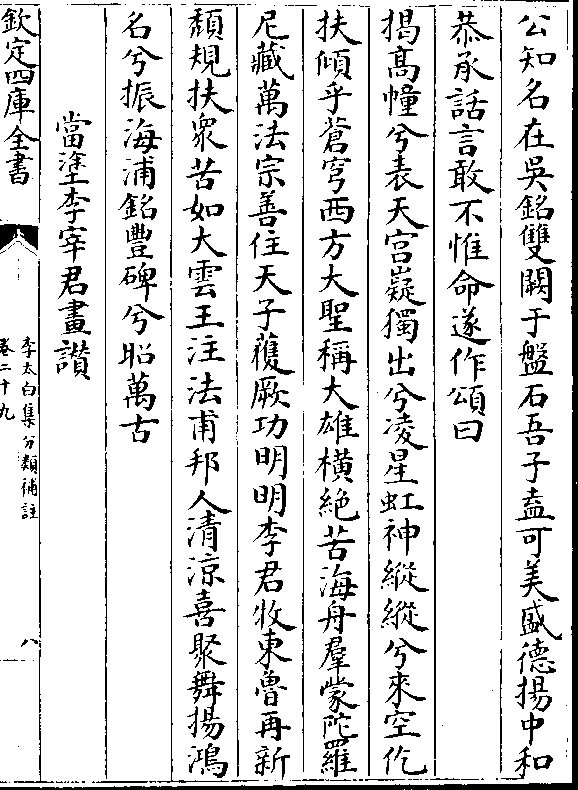 公知名在吳銘雙闕于盤石吾子盍可美盛德揚中和
恭承話言敢不惟命遂作頌曰
揭髙幢兮表天宮嶷獨出兮凌星虹神縱縱兮來空仡
扶傾乎蒼穹西方大聖稱大雄橫絶苦海舟羣蒙陀羅
尼藏萬法宗善住天子獲厥功明明李君牧東魯再新
頽規扶衆苦如大雲王注法雨邦人清涼喜聚舞揚鴻
名兮振海浦銘豐碑兮昭萬古
當塗李宰君畫讃
欽定四庫全書
李太白集分類補註
卷二十九
八